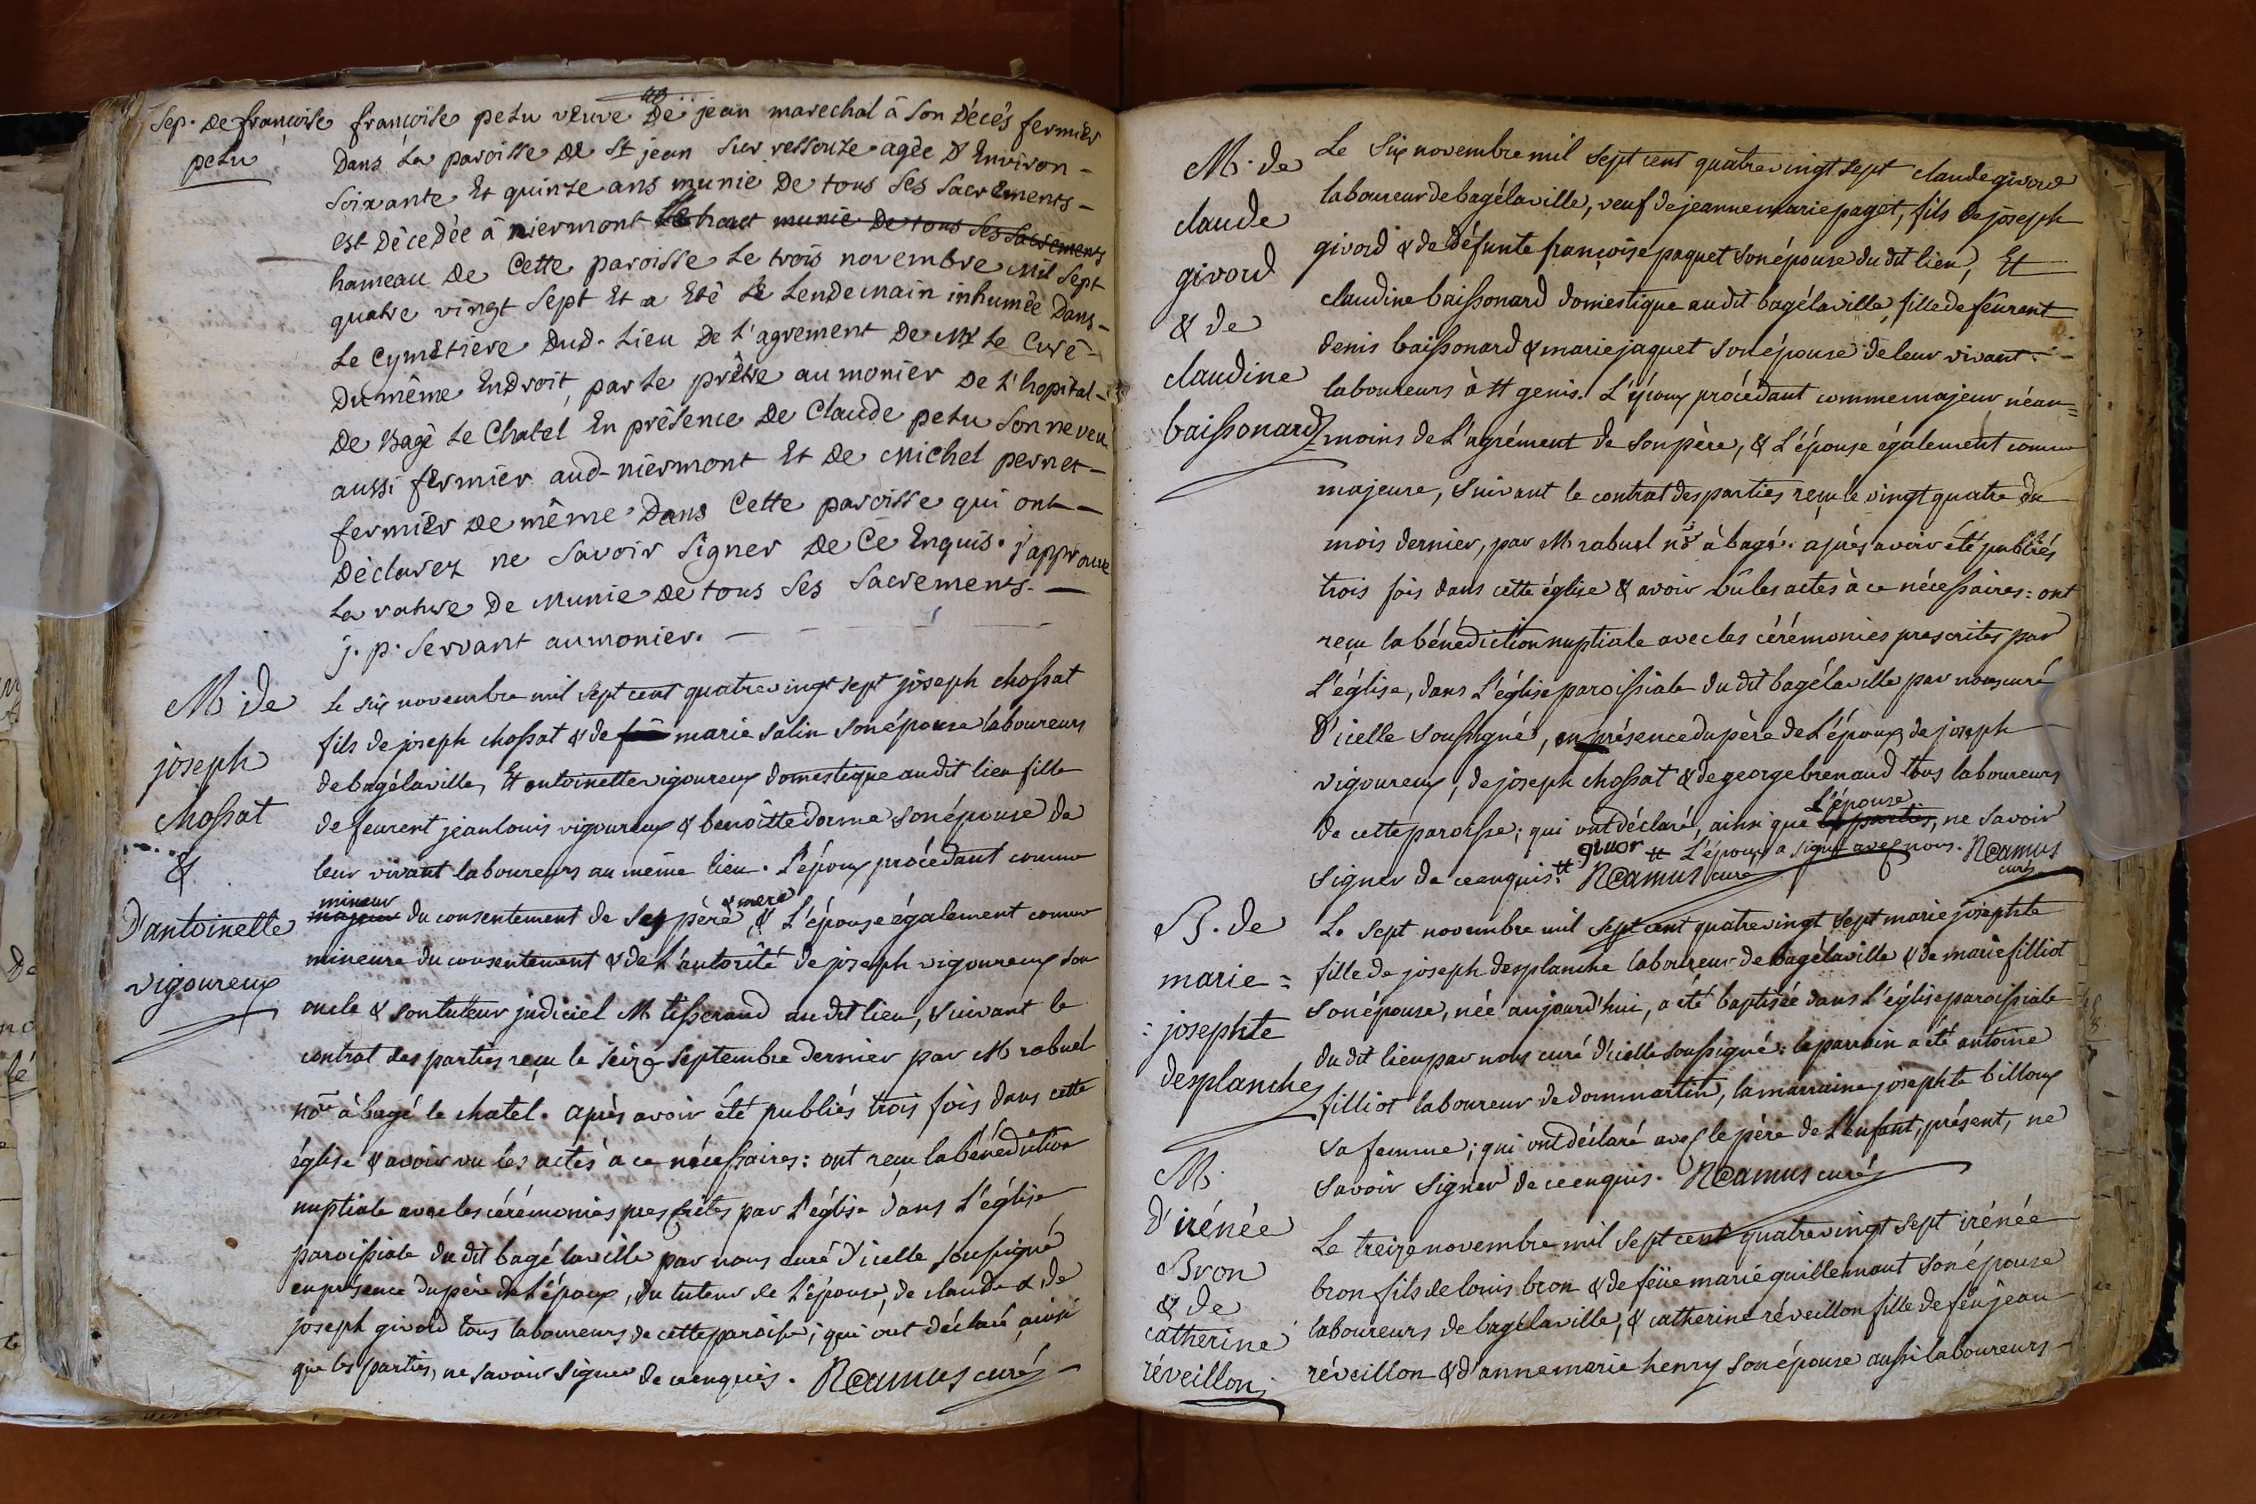 Sep. de françoise
petu
françoise petu veuve De jean marechal à son Décès fermier
Dans La paroisse de St jean sur ressouze agée D'Environ -
soixante Et quinze ans munie De tous Ses Sacrements -
est Décedée à niermont Le haut munie De tous Ses Sacrements
hameau De Cette paroisse Le trois novembre Mil Sept
quatre vingt Sept Et a Eté Le Lendemain inhumée Dans -
Le Cymetière Dud. Lieu De L'agrement De Mr Le Curé -
Du même Endroit, par Le prêtre aumonier De L'hopital -
De Bagé Le Chatel En présence De Claude petu Son neveu
aussi fermier aud. niermont Et De Michel pernet -
fermier De même Dans Cette paroisse qui ont -
Déclarez ne Savoir Signer De Ce Enquis. j'approuve
La rature De Munie De tous Ses Sacrements. -
j. p. Servant aumonier. -
M. de
joseph
chossat
&
D'antoinette
vigoureux
Le six novembre mil sept cent quatrevingt sept joseph chossat
fils de joseph chossat & de marie salin son épouse laboureurs
de bagélaville, Et antoinette vigoureux domestique audit lieu fille
de feurent jeanlouis vigoureux & benoîtte dorme son épouse de
leur vivant laboureurs au même lieu. L'époux procédant comme
mineur & mere
majeur du consentement de ses père, & L'épouse également comme
mineure du consentement & de L'autorité de joseph vigoureux son
oncle & son tuteur judiciel M tisserand au dit lieu, suivant le
contrat des parties reçu le seize septembre dernier par M rabuel
nore à bagé le chatel. après avoir été publiés trois fois dans cette
église & avoir vu les actes à ce nécessaires: ont reçu la bénédiction
nuptiale avec les cérémonies prescrites par L'église dans L'église
paroissiale du dit bagé laville par nous curé d'icelle soussigné
en présence du père de L'époux, du tuteur de L'épouse, de claude & de
joseph givord tous laboureurs de cette paroisse; qui ont déclaré, ainsi
que les parties, ne savoir signer de ce enquis. N camus curé
M. de
claude
givord
& de
claudine
baissonard
Le Six novembre mil sept cent quatrevingt sept claude givord
laboureur de bagélaville, veuf de jeanne marie paget, fils de joseph
givord & de défunte françoise paquet son épouse du dit lieu, Et
claudine baissonard domestique au dit bagélaville, fille de feurent
denis baissonard & marie jaquet son épouse de leur vivant -
laboureurs à st genis. L'époux procédant comme majeur, néan=
=moins de L'agrément de son père, & L'épouse également comme
majeure, suivant le contrat des parties reçu le vingt quatre du
mois dernier, par M rabuel nore à bagé. après avoir été publiés
trois fois dans cette église & avoir vû les actes à ce nécessaires: ont
reçu la bénédiction nuptiale avec les cérémonies prescrites par
L'église, dans L'église paroissiale du dit bagélaville par nous curé
D'icelle soussigné, en présence du père de L'époux, de joseph
vigoureux, de joseph chossat & de george brenaud tous laboureurs
L'épouse
de cette paroisse; qui ont déclaré, ainsi que les parties, ne savoir
givor # L'époux a signé avec nous. N camus
curé
signer de ce enquis. # N camus curé
B. de
marie =
= josephte
desplanche
Le sept novembre mil sept cent quatrevingt sept marie josephte
fille de joseph desplanche laboureur de bagélaville & de marie filliot
son épouse, née aujourd'hui, a été baptisée dans L'église paroissiale
du dit lieu par nous curé d'icelle soussigné. le parrain a été antoine
filliot laboureur de dommartin, la marraine josephte billoux
sa femme; qui ont déclaré avec le père de L'enfant, présent, ne
savoir signer de ce enquis. N camus curé
M.
D'irénée
Bron
& de
catherine
réveillon
Le treize novembre mil sept cent quatrevingt sept irénée
bron fils de louis bron & de feüe marie guillemaut son épouse
laboureurs de bagélaville, & catherine réveillon fille de feu jean
réveillon & d'anne marie henry son épouse aussi laboureurs -